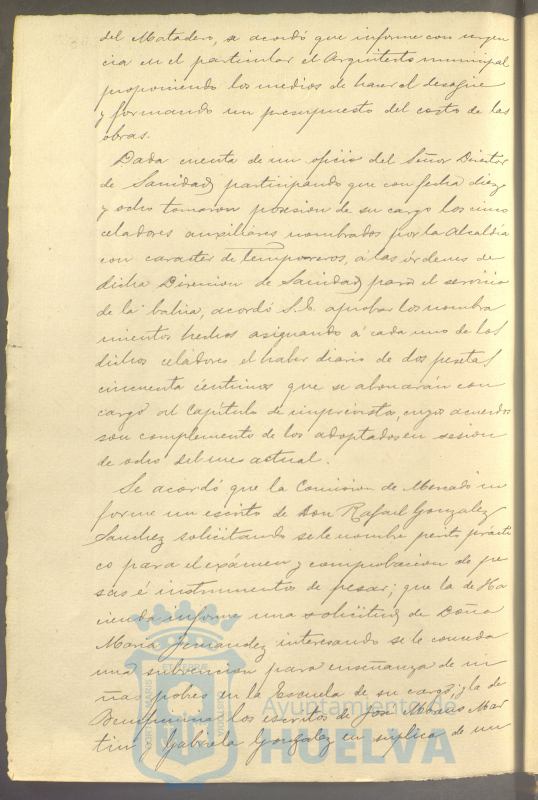 del Matadero, se acordó que informe con urgen
cia en el particular el Arquitecto municipal
proponiendo los medios de hacer el desagüe
y formando un presupuesto del costo de las
obras.
Dada cuenta de un oficio del Señor Director
de Sanidad participando que con fecha diez
y ocho tomaron posesion de su cargo los cinco
celadores auxiliares nombrados por la Alcaldia
con caracter de temporeros, a las órdenes de
dicha Direccion de Sanidad para el servicio
de la bahia, acordó S.E. aprobar los nombra
mientos hechos asignando á cada uno de los
dichos celadores el haber diario de dos pesetas
cincuenta céntimos que se abonarán con
cargo al Capítulo de imprevistos, cuyos acuerdos
son complemento de los adoptados en sesion
de ocho del mes actual.
Se acordó que la Comision de Mercado in
forme un escrito de Don Rafael Gonzalez
Sanchez solicitando se le nombre perito prácti
co para el exámen y comprobacion de pe
sas é instrumentos de pesar; que la de Ha
cienda informe una solicitud de Doña
Maria Fernandez interesando se le conceda
una subvencion para enseñanza de ni
ñas pobres en la Escuela de su cargo; y la de
Beneficencia los escritos de José Mar
tin y Gabriela Gonzalez en súplica de un
Ayuntamiento de
HUELVA